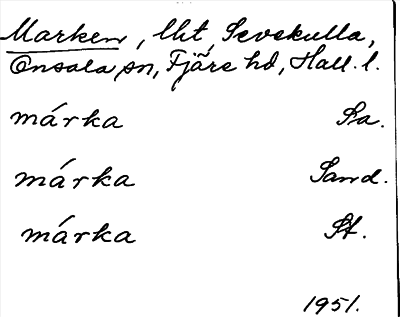 Marken, lht, Sevekulla,
Onsala sn, Fjäre hd, Hall. l.
márka Pa.
márka Sand.
márka St.
1951.